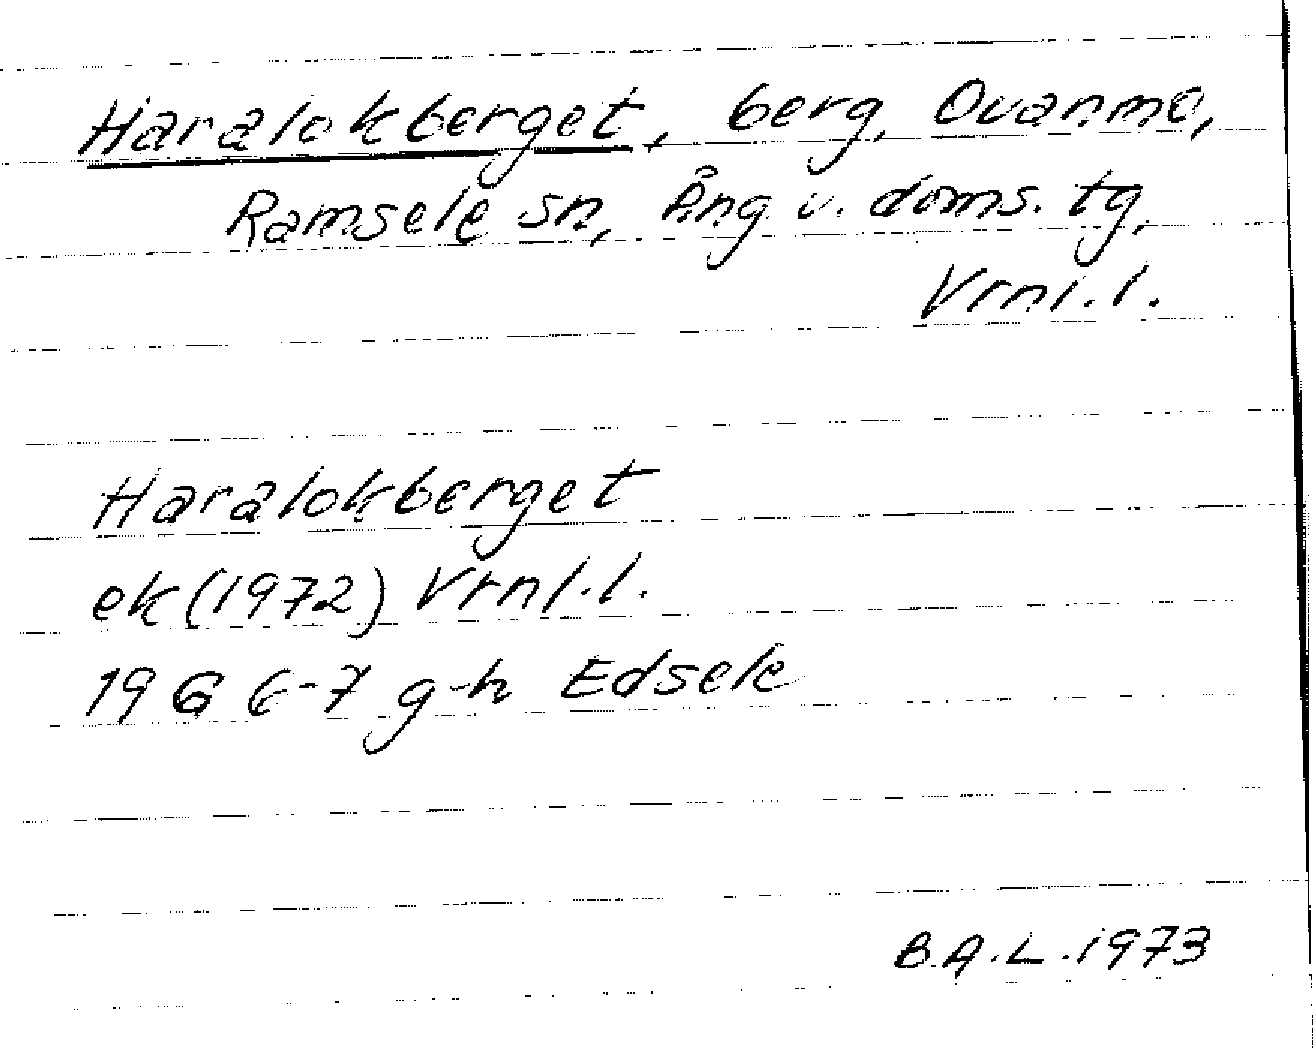 Haralokberget, berg, Ovanmo,
Ramsele sn, Ång. v. doms. tg,
Vrnl.l.
Haralokberget
ek (1972) Vrnl.l.
19 G 6-7 g-h Edsele
B.A.L. 1973